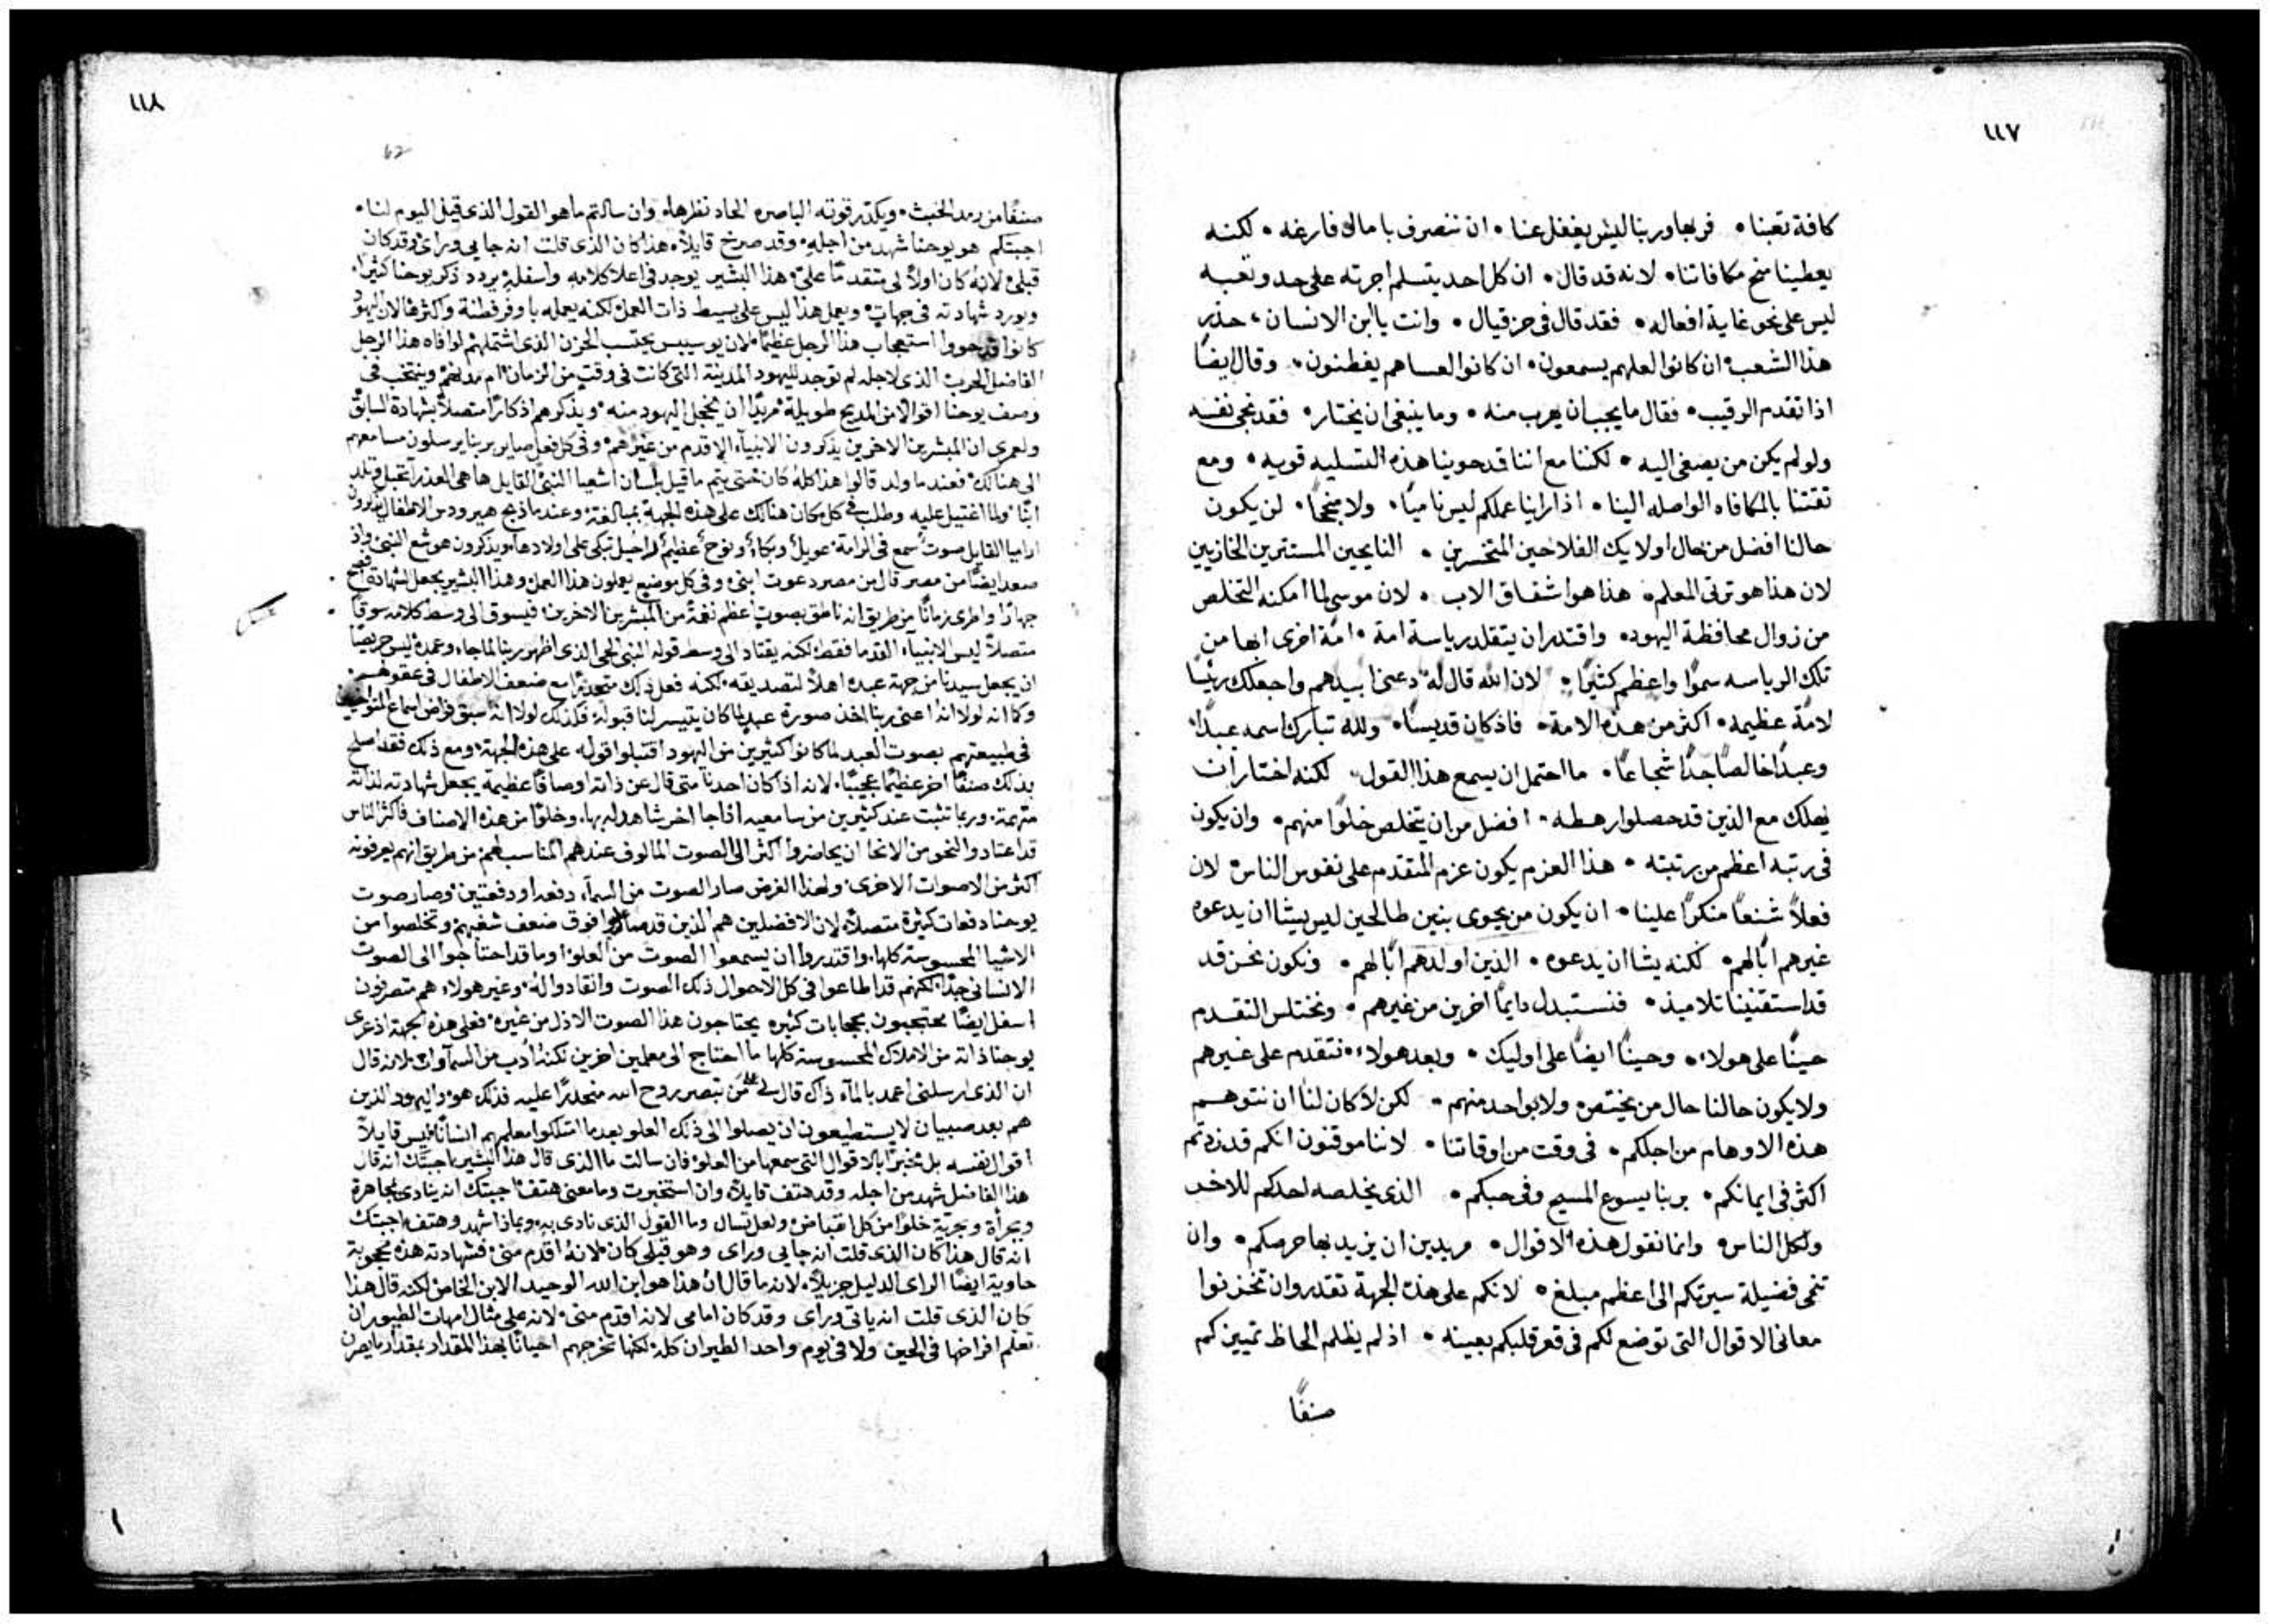 ١١٧
كافة تعبنا • فربها وربنا ليس يغفل عنا • ان ننصرف بامال فارغه • لكنه
يعطينا منح مكافاتنا • لانه قد قال • ان كل احد يتسلم اجرته على حد وتعبه
ليس على نحو غاية افعاله • فقد قال في حزقيال • وانت يا ابن الانسان، حذر
هذا الشعب • ان كانوا لعلهم يسمعون • ان كانوا لعساهم يفطنون • وقال ايضًا
اذا تقدم الرقيب • فقال ما يجب ان يهرب منه • وما ينبغي ان يختار • فقد نجى نفسه
ولو لم يكن من يصغى اليه • لكننا مع اننا قد حوينا هذه التسليه قويه • ومع
ثقتنا بالمكافاه الواصله الينا • اذا راينا عملكم ليس ناميًا • ولا منجحًا • لن يكون
حالنا افضل من حال اولايك الفلاحين المتحسرين • النايحين المستترين الخازيين
لان هذا هو ترتى المعلم • هذا هو اشفاق الاب • لان موسى لما امكنه التخلص
من زوال محافظة اليهود • واقتدر ان يتقلد رياسة امة • امة اخرى ابها من
تلك الرياسه سموًا واعظم كثيرًا • لان الله قال له دعنى ابيدهم واجعلك رئيسًا
لامة عظيمه • اكثر من هذه الامة • فاذ كان قديسًا • ولله تبارك اسمه عبدًا
وعبدًا خالصًا جدًا شجاعًا • ما احتمل ان يسمع هذا القول لكنه اختار ان
يهلك مع الذين قد حصلوا رهطه • افضل من ان يتخلص خلوًا منهم • وان يكون
في رتبه اعظم من رتبته • هذا العزم يكون عزم المتقدم على نفوس الناس • لان
فعلاً شنعًا منكرًا علينا • ان يكون من يحوى بنين طالحين ليس يشا ان يدعوه
غيرهم ابًا لهم • لكنه يشا ان يدعوه • الذين اولدهم ابًا لهم • ونكون نحن قد
قد استقنينا تلاميذ • فنستبدل دايمًا اخرين من غيرهم • ونختلس التقدم
حينًا على هولاء • وحينًا ايضًا على اوليك • وبعد هولاء نتقدم على غيرهم
ولا يكون حالنا حال من يختص ولا بواحد منهم • لكن لا كان لنا ان نتوهم
هذه الاوهام من اجلكم • في وقت من اوقاتنا • لاننا موقنون انكم قد زدتم
اكثر في ايمانكم • بربنا يسوع المسيح وفي حبكم • الذى يخلصه احدكم للاخر
ولكل الناس • وانما نقول هذه الاقوال • مريدين ان يزيد بها حرصكم • وان
تنمى فضيلة سيرتكم الى اعظم مبلغ • لانكم على هذه الجهة تقدروا ان تخزنوا
معانى الاقوال التى توضع لكم في قعر قلبكم بعينه • اذ لم يظلم الحاظ تمييزكم
صنفًا
١١٨
62
صنفًا من رمد الخبث • ويكدر قوته الباصره الحاد نظرها • وان سالتم ما هو القول الذى قيل اليوم لنا •
اجبتكم هو يوحنا شهد من اجله • وقد صرخ قايلاً • هذا كان الذى قلت انه جايى وراى • وقد كان
قبلى لانه كان اولاً لى متقدمًا على • هذا البشير يوجد في اعلا كلامه واسفله يردد ذكر يوحنا كثيرًا •
ويورد شهادته في جهات • ويعمل هذا ليس على بسيط ذات العمل لكنه يعمله باوفر فطنة واكثرها لان اليهود
كانوا قد حووا استعجاب هذا الرجل عظيمًا • لان يوسيبس يحتسب الحزن الذى اشتملهم لوافاه هذا الرجل
الفاضل الحرب الذى لاجله لم توجد لليهود المدينة التى كانت في وقت من الزمان ام مدنهم
وصف يوحنا اقوالاً من المديح طويلة • مريدًا ان يخجل اليهود منه • ويذكرهم اذكارًا متصلاً بشهادة السابق
ولعمرى ان المبشرين الاخرين يذكرون الانبياء الاقدم من غيرهم • وفي كل فعل صاير بربنا يرسلون مسامعهم
الى هنالك • فعند ما ولد قالوا هذا كله كان حتى يتم ما قيل بلسان اشعيا النبى القايل ها هى العذرا تحبل وتلد
ابنًا • ولما اغتيل عليه وطلب في كل مكان هنالك على هذه الجهة بمبالغة • وعند ما ذبح هيرودس الاطفال
ارميا القايل صوت سمع في الرامة • عويل وبكاء ونوح عظيم راحيل تبكى على اولادها • ويذكرون هوشع النبى واذ
صعد ايضًا من مصر قال من مصر دعوت ابنى • وفي كل موضع يعملون هذا العمل • وهذا البشير يجعل الشهادة افصح
جهارًا واطرى زمانًا من طريق انه ناطق بصوت اعظم نغمة من المبشرين الاخرين • فيسوق الى وسط كلامه سوقًا
متصلاً ليس الانبياء القدما فقط • لكنه يقتاد الى وسط قوله النبى الحى الذى اظهر ربنا لما جاء وعمده ليس حريصًا
ان يجعل سيدنا من جهة عبده اهلاً لتصديقه • لكنه فعل ذلك متحدرًا مع ضعف الاطفال في عقولهم •
وكما انه لولا انه اعنى ربنا اخذ صورة عبد لما كان يتيسر لنا قبوله • فكذلك لولا انه سبق فراض اسماع
في طبيعتهم بصوت العبد لما كانوا كثيرين من اليهود اقتبلوا قوله على هذه الجهة • ومع ذلك فقد اصلح
بذلك صنفًا اخر عظيمًا عجيبًا • لانه اذا كان احدنا متى قال عن ذاته اوصافًا عظيمة يجعل شهادته لذاته
متهمة • وربما تثبت عند كثيرين من سامعيه اذا جا اخر شاهد له بها • وخلوًا من هذه الاصناف فاكثر الناس
قد اعتادوا لنحو من الانحا ان يحاضروا اكثر الى الصوت المالوف عندهم المناسب لهم • من طريق انهم يعرفونه
اكثر من الاصوات الاخرى • ولهذا الغرض صار الصوت من السماء دفعه او دفعتين • وصار صوت
يوحنا دفعات كثيرة متصلاً • لان الافضلين هم الذين قد صاروا فوق ضعف شغبهم وتخلصوا من
الاشيا المحسوسة كلها • واقتدروا ان يسمعوا الصوت من العلو • وما قد احتاجوا الى الصوت
الانسانى جدًا • لكنهم قد اطاعوا في كل الاحوال ذلك الصوت وانقادوا له • وغير هولاء هم متصرفون
اسفل ايضًا محتجبون بحجابات كثيره يحتاجون هذا الصوت الاذل من غيره • فعلى هذه الجهة اذ عرى
يوحنا ذاته من الاملاك المحسوسة كلها ما احتاج الى معلمين اخرين لكنه ادب من السماوات لانه قال
ان الذى ارسلنى اعمد بالماء ذاك قال لى على من تبصر روح الله منحدرًا عليه فذلك هو • واليهود الذين
هم بعد صبيان لا يستطيعون ان يصلوا الى ذلك العلو بعد ما امتلكوا معلمهم انسانًا ليس قايلاً
اقوال نفسه بل مخبرًا بالاقوال التى سمعها من العلو • فان سالت ما الذى قال هذا البشير اجبتك انه قال
هذا الفاضل شهد من اجله وقد هتف قايلاً • وان استخبرت وما معنى هتف اجبتك انه ينادى مجاهرة
وبجرأة وبحرية خلوًا من كل انقباض • ولعل تسال وما القول الذى نادى به • وبماذا شهد وهتف اجبتك
انه قال هذا كان الذى قلت انه جايى وراى وهو قبلى كان • لانه اقدم منى • فشهادته هذه محجوبة
حاوية ايضًا الراى الذليل جزيلاً • لانه ما قال ان هذا هو ابن الله الوحيد الابن الخاص لكنه قال هذا
كان الذى قلت انه ياتى وراى وقد كان امامى لانه اقدم منى • لانه على مثال امهات الطيور ان
تعلم افراخها في الحين ولا في يوم واحد الطيران كله • لكنها تخرجهم احيانًا بهذا المقدار بمقدار ما يصرن